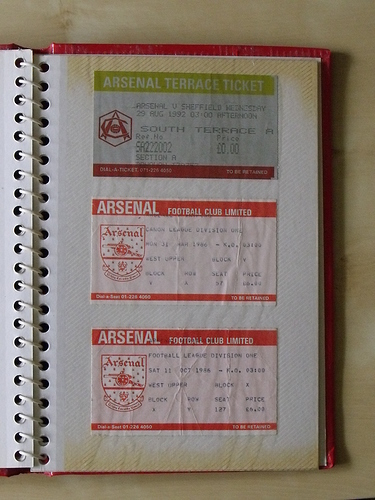 ARSENAL TERRACE TICKET
ARSENAL V SHEFFIELD WEDNESDAY
29 AUG 1992 03:00 AFTERNOON
SOUTH TERRACE A
Ref No Price
SA222002 £0.00
SECTION A
DIAL-A-TICKET TO BE RETAINED
ARSENAL FOOTBALL CLUB LIMITED
Arsenal
LEAGUE DIVISION ONE
MON 31 MAR 1986 - K.O. 03:00
WEST UPPER BLOCK Y
BLOCK ROW SEAT PRICE
Y X 57
Dial a Seat 01-226 4050 TO BE RETAINED
ARSENAL FOOTBALL CLUB LIMITED
Arsenal
FOOTBALL LEAGUE DIVISION ONE
SAT 11 OCT 1986 - K.O. 03:00
WEST UPPER BLOCK X
BLOCK ROW SEAT PRICE
X Y 127 £6.00
Dial a Seat 01-226 4050 TO BE RETAINED